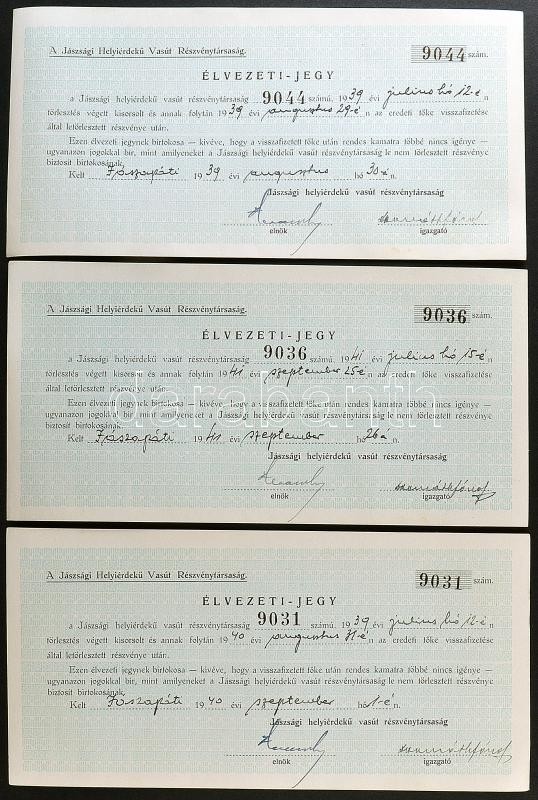 A Jászsági Helyiérdekű Vasút Részvénytársaság.
9044 szám.
ÉLVEZETI-JEGY
a Jászsági helyiérdekű vasút részvénytársaság 9044 számú, 1939 évi julius hó 12-én
törlesztés végett kisorsolt és annak folytán 1939 évi augusztus 29-én az eredeti tőke visszafizetése
által letörlesztett részvénye után.
Ezen élvezeti jegynek birtokosa — kivéve, hogy a visszafizetett tőke után rendes kamatra többé nincs igénye —
ugyanazon jogokkal bir, mint amilyeneket a Jászsági helyiérdekű vasút részvénytársaság le nem törlesztett részvénye
biztosit birtokosának.
Kelt Jászapáti 1939 évi augusztus hó 30-án.
Jászsági helyiérdekű vasút részvénytársaság
elnök igazgató
A Jászsági Helyiérdekű Vasút Részvénytársaság.
9036 szám.
ÉLVEZETI-JEGY
a Jászsági helyiérdekű vasút részvénytársaság 9036 számú, 1941 évi julius hó 15-én
törlesztés végett kisorsolt és annak folytán 1941 évi szeptember 25-én az eredeti tőke visszafizetése
által letörlesztett részvénye után.
darabanth
Ezen élvezeti jegynek birtokosa — kivéve, hogy a visszafizetett tőke után rendes kamatra többé nincs igénye —
ugyanazon jogokkal bir, mint amilyeneket a Jászsági helyiérdekű vasút részvénytársaság le nem törlesztett részvénye
biztosit birtokosának.
Kelt Jászapáti 1941 évi szeptember hó 26án.
Jászsági helyiérdekű vasút részvénytársaság
elnök igazgató
A Jászsági Helyiérdekű Vasút Részvénytársaság.
9031 szám.
ÉLVEZETI-JEGY
a Jászsági helyiérdekű vasút részvénytársaság 9031 számú, 1939 évi julius hó 12-én
törlesztés végett kisorsolt és annak folytán 1940 évi augusztus 31-én az eredeti tőke visszafizetése
által letörlesztett részvénye után.
Ezen élvezeti jegynek birtokosa — kivéve, hogy a visszafizetett tőke után rendes kamatra többé nincs igénye —
ugyanazon jogokkal bir, mint amilyeneket a Jászsági helyiérdekű vasút részvénytársaság le nem törlesztett részvénye
biztosit birtokosának.
Kelt Jászapáti 1940 évi szeptember hó 1-én.
Jászsági helyiérdekű vasút részvénytársaság
elnök igazgató